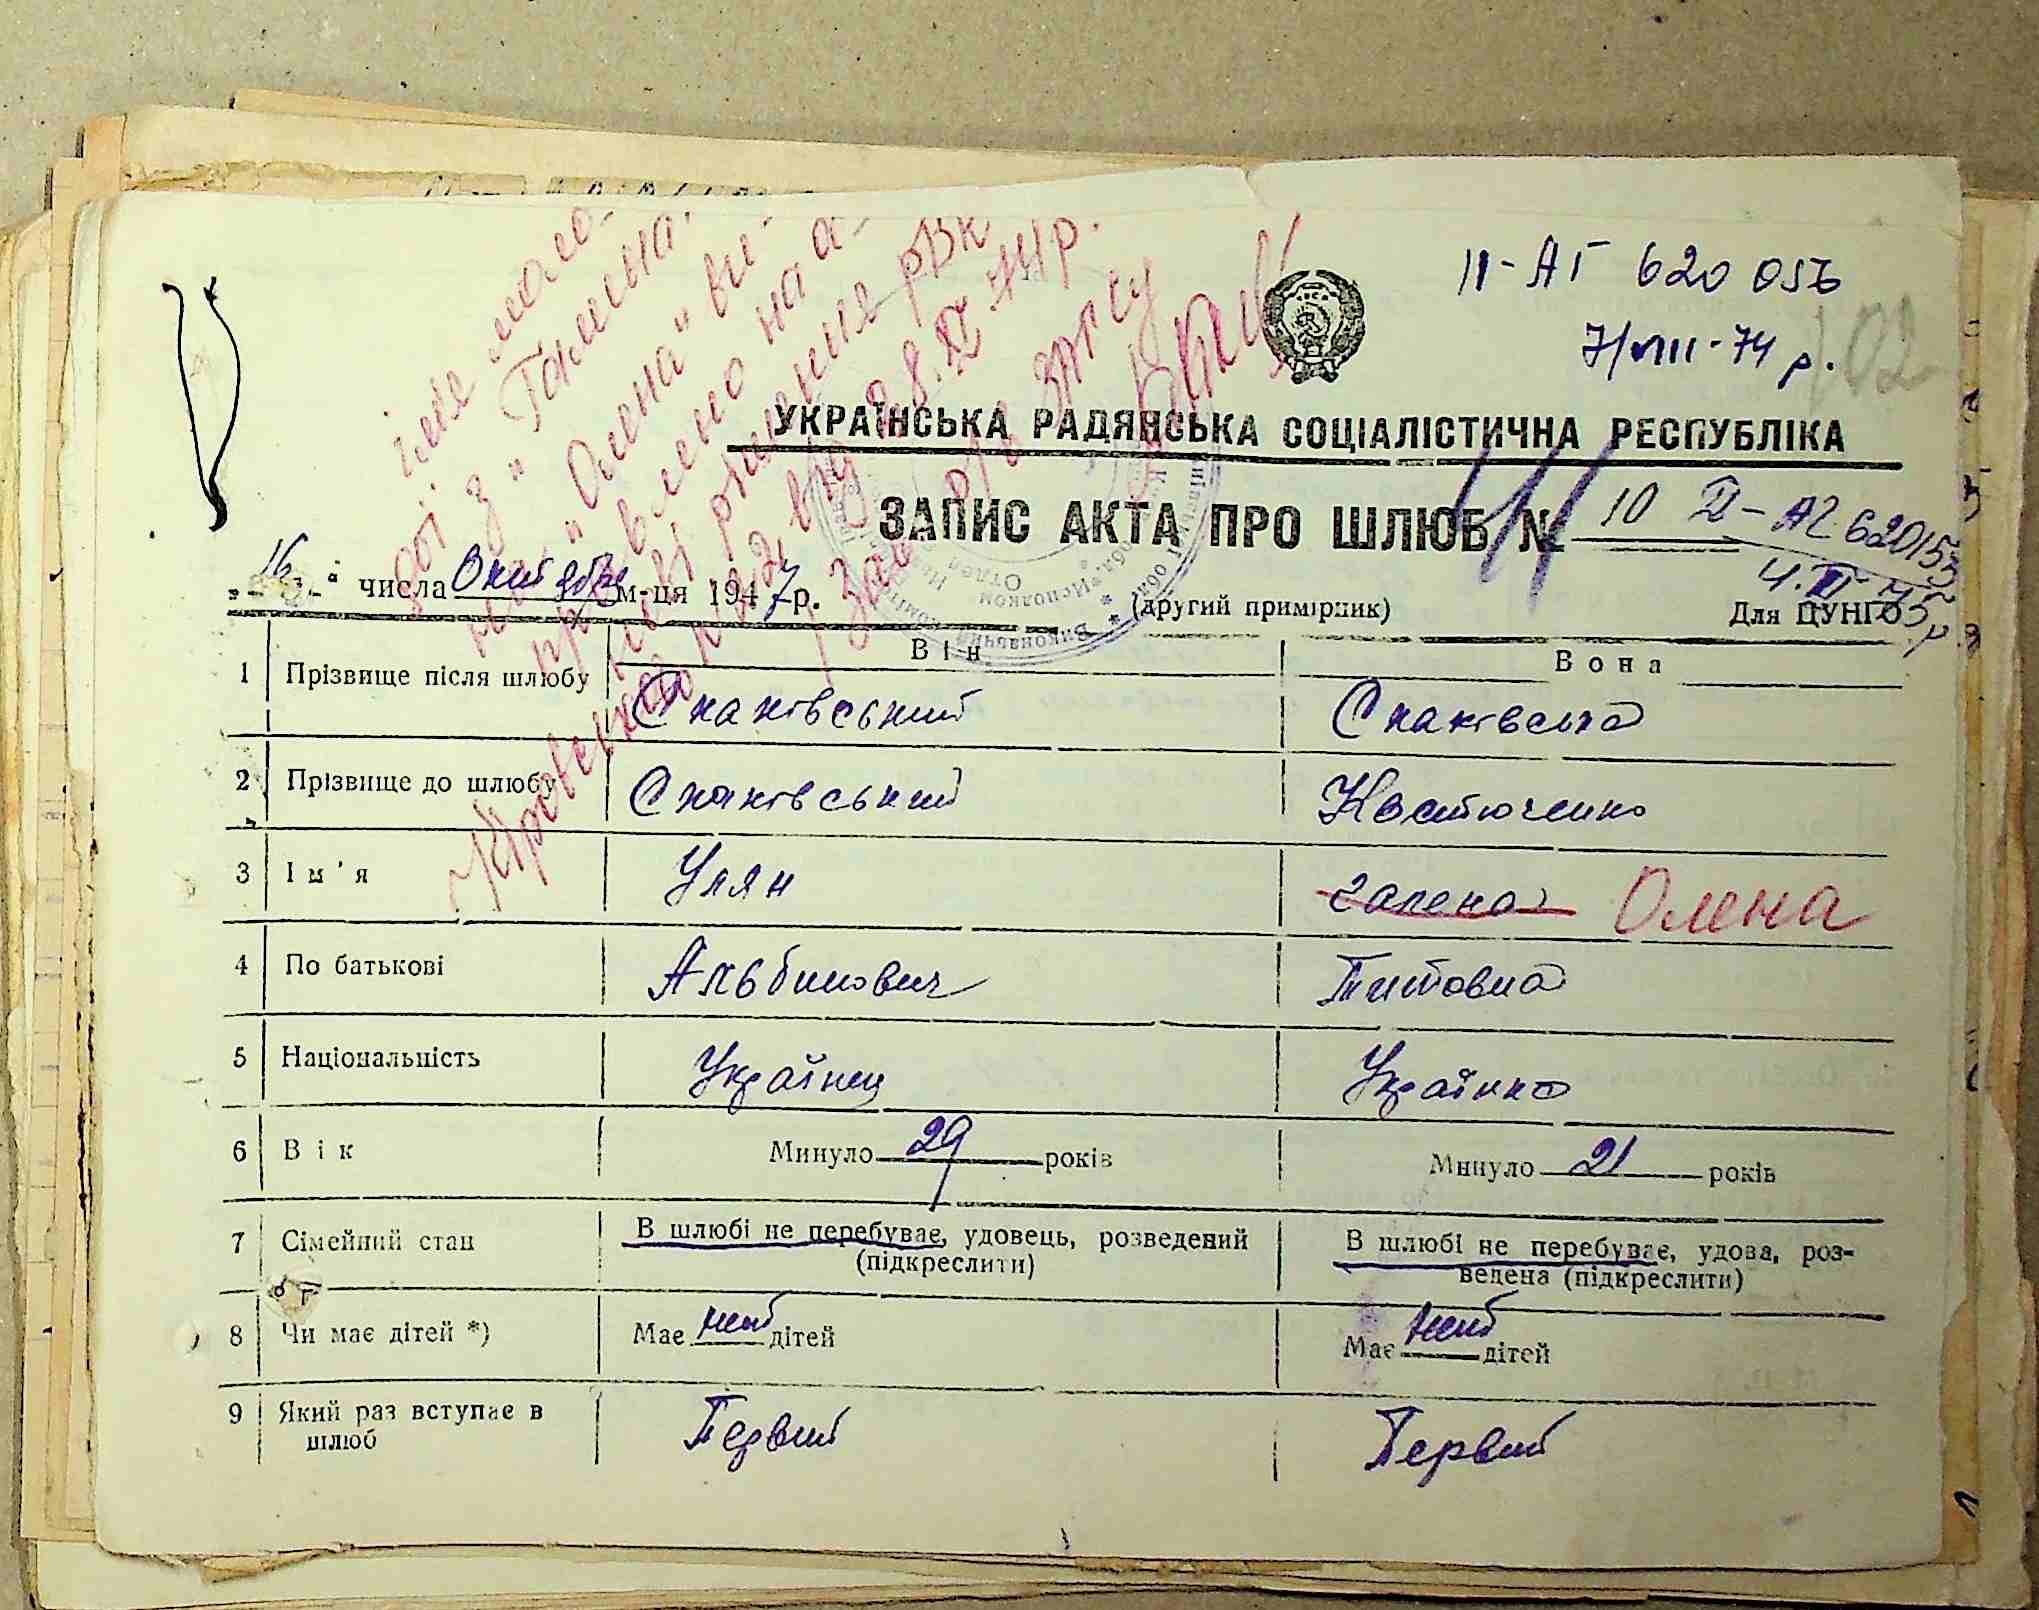 ІІ-АГ 620 056
7/VIII-74 р.
102
ім'я моло-
дої з "Галина"
на "Олена" ви-
правлено на
рішення РВК
28.XI.74р.
УКРАЇНСЬКА РАДЯНСЬКА СОЦІАЛІСТИЧНА РЕСПУБЛІКА
ЗАПИС АКТА ПРО ШЛЮБ № 10 ІІ-АГ 620153
"16" числа Октября м-ця 1947 р.
(другий примірник)
Для ЦУНГО
Він Вона
1 Прізвище після шлюбу Скаківський Скаківська
2 Прізвище до шлюбу Скаківський Костюченко
3 Ім'я Улян Галена Олена
4 По батькові Альбинович Титовна
5 Національність Українец Українка
6 Вік Минуло 29 років Минуло 21 років
7 Сімейний стан В шлюбі не перебуває, удовець, розведений (підкреслити) В шлюбі не перебуває, удова, роз-
ведена (підкреслити)
8 Чи має дітей *) Має нет дітей Має нет дітей
9 Який раз вступає в Первий Первий
шлюб